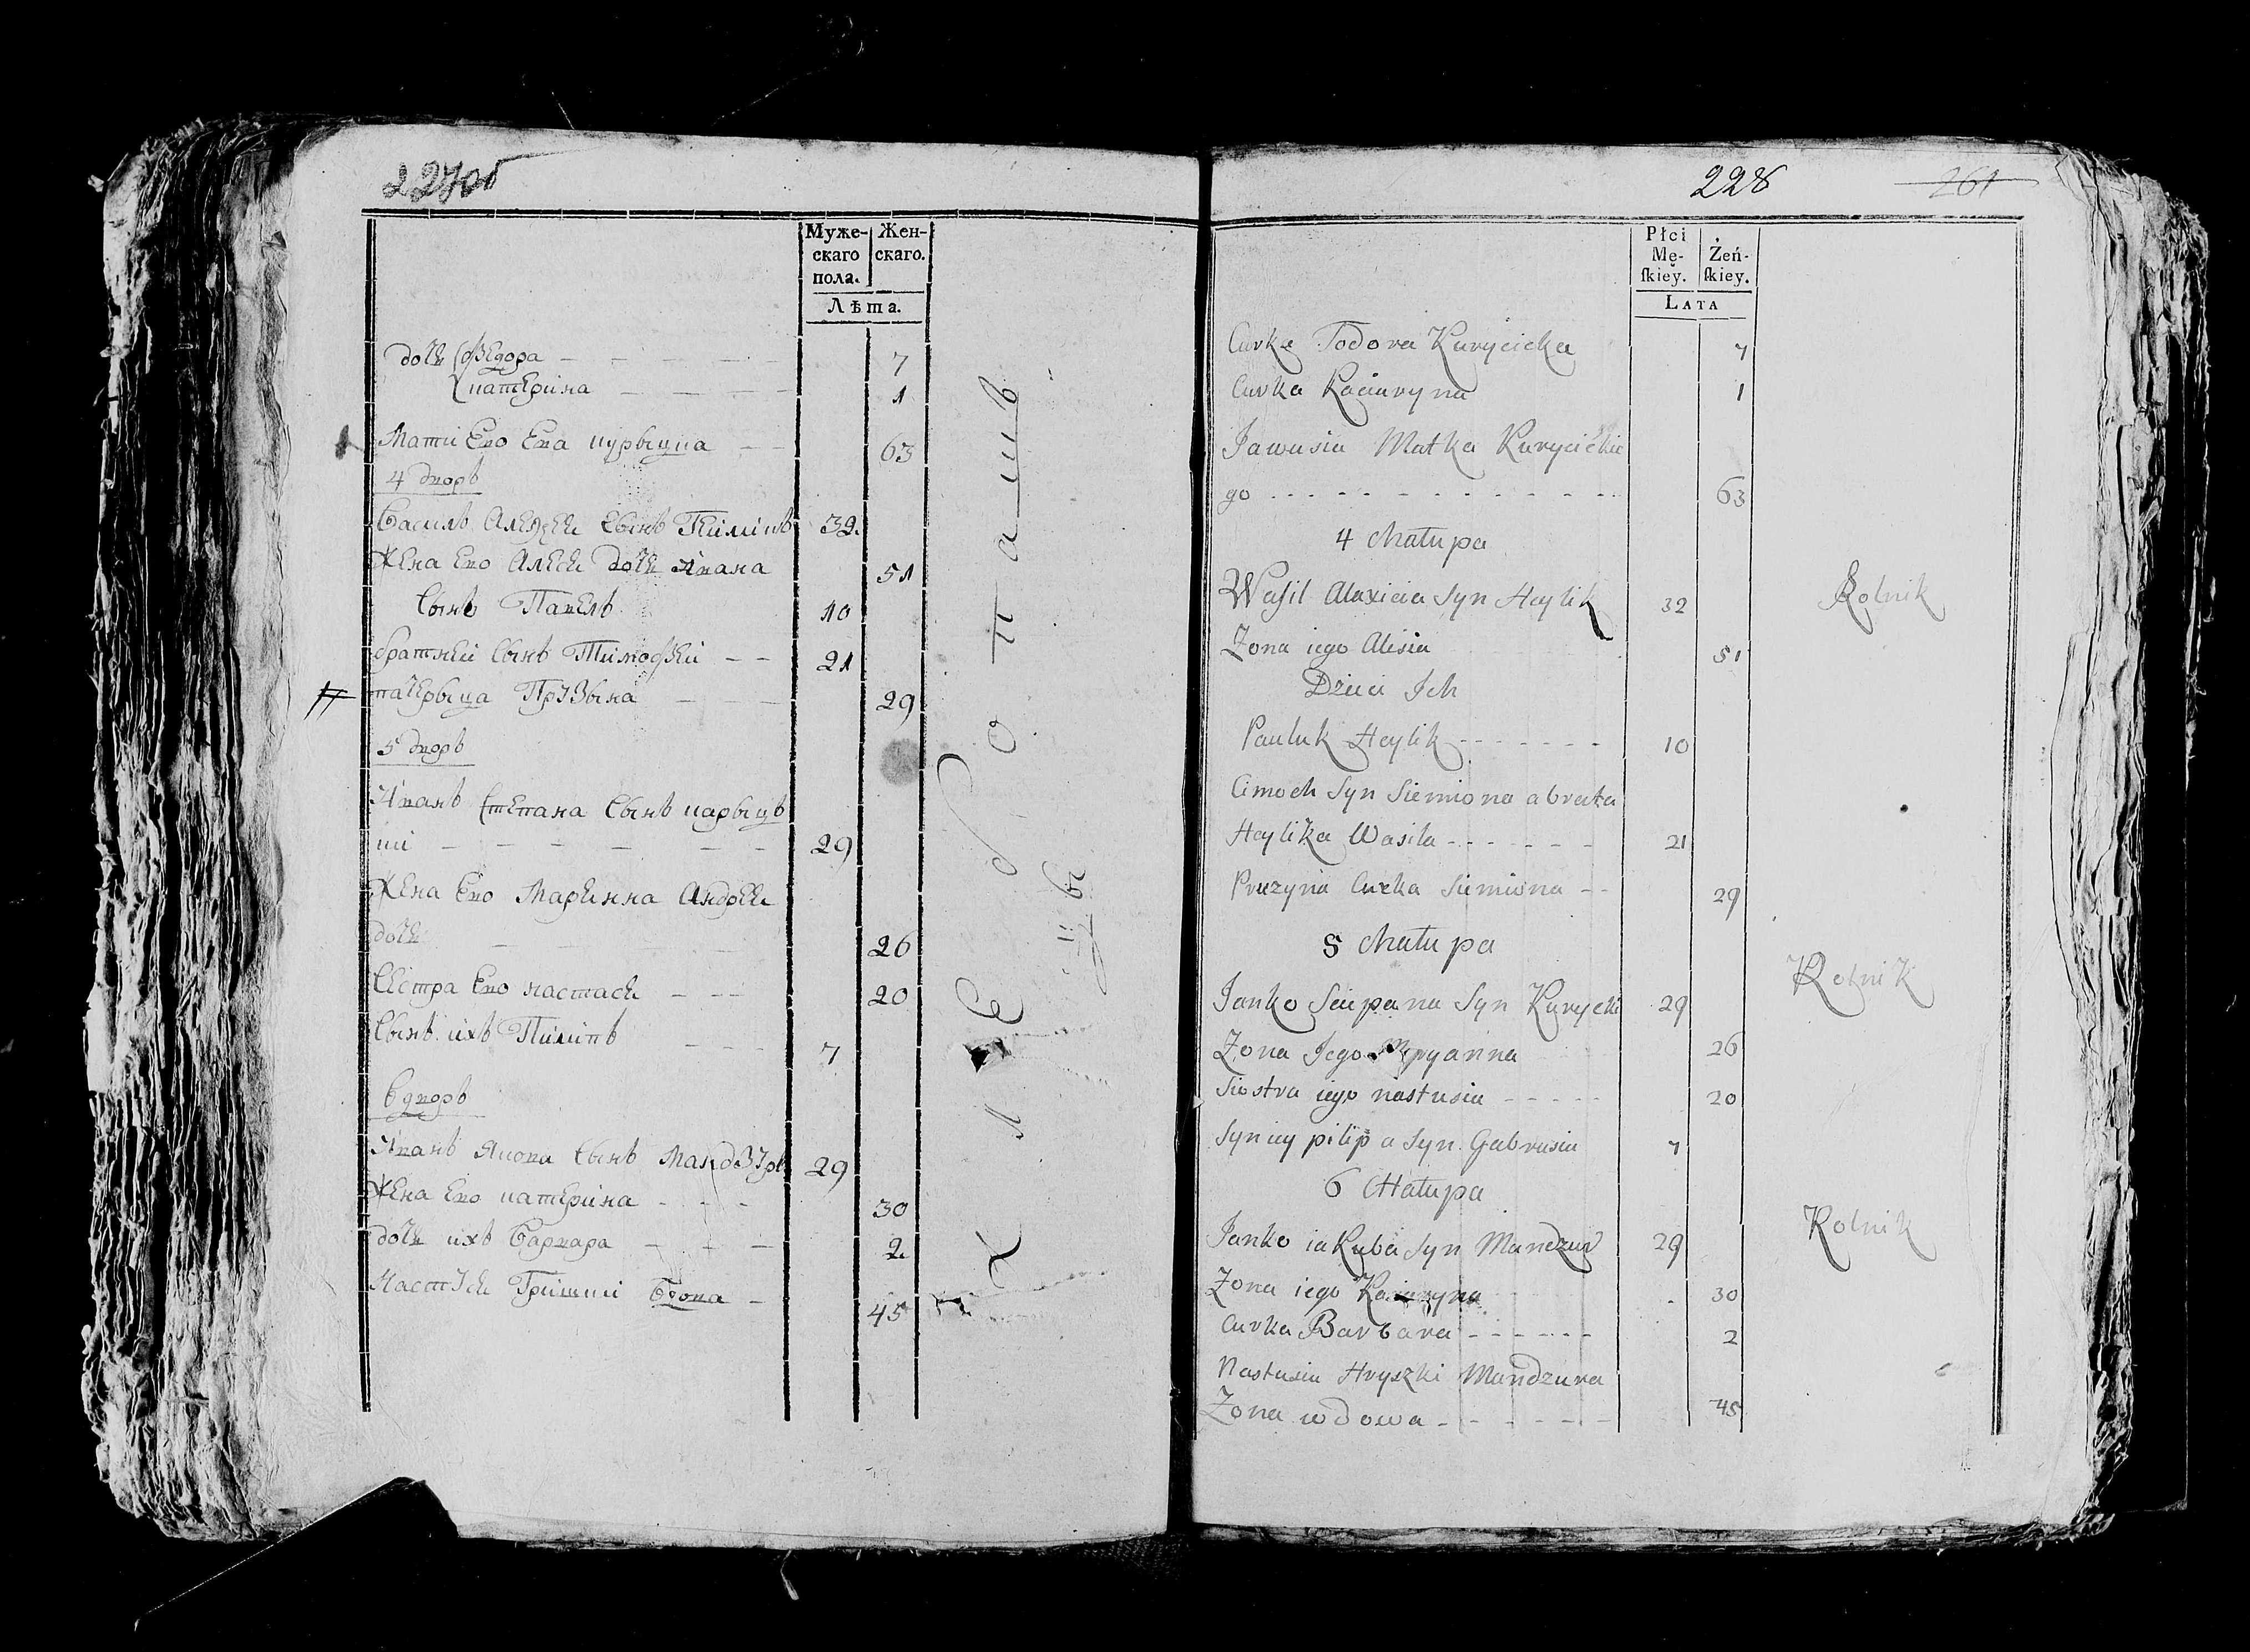 227об
Муже-
скаго
пола.
Жен-
скаго.
Лѣта.
дочь Ѳедора — — — — — 7
катерина — — — — 1
Мати Его Ева курыцка — — 63
4 дворъ
Василь Алексеи Сынъ Гилікъ 32.
Жена Его Алеси дочь Ивана 51
Сынъ Павелъ 10
братнеи Сынъ Тимоѳеи — — 21
29
5 дворъ
Иванъ Степана Сынъ
ки — — — — — — 29
Жена Его Марьянна Андреи
дочь — — — 26
Сестра Его настася — — — 20
Сынъ ихъ Пилипъ — — — 7
6 дворъ
Иванъ Якова Сынъ 29
Жена Его катерина — — — 30
дочь ихъ Варвара — — — 2
Гришки Вдова — 45
Хлебопашъ
228
261
Płci
Mę-
ſkiey.
Żeń-
ſkiey.
LATA
Curka Todora Kurycicka 7
Curka Kaciaryna 1
Jawusia Matka Kurycickie
go - - - - - - - - - - - - 63
4 Chatupa
Wasil Alaxieia Syn Haylik 32 Rolnik
Zona iego Alisia 51
Dzieci Ich
Pauluk Haylik - - - - - - - 10
Cimoch Syn Siemiona a brata
Haylika Wasila - - - - - - 21
Pruzyna Curka Siemiona - - 29
5 Chatupa
Janko Sciepana Syn Kurycki 29 Rolnik
Zona Jego 26
Siostra iego nastusia - - - - - 20
Syn iey pilip a Syn Gabrusia 7
6 Chatupa
Janko iakuba Syn Mandzur 29 Rolnik
Zona iego Kaciaryna 30
Curka Barbara - - - - - - 2
Nastusia Hryszki Mandzura
Zona wdowa - - - - - - - 45